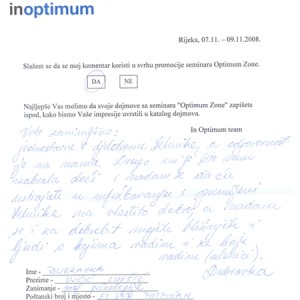 inoptimum
Rijeka, 07.11. – 09.11.2008.
Slažem se da se moj komentar koristi u svrhu promocije seminara Optimum Zone.
DA
NE
Najljepše Vas molimo da svoje dojmove sa seminara "Optimum Zone" zapišete
ispod, kako bismo Vaše impresije uvrstili u katalog dojmova.
In Optimum team
Vrlo zanimljivo,
jednostavne i djelotvorne tehnike, a odgovornost
je na nama. Drago mi je što sam
izabrala doći i nadam se da ću
ustrajati u
tehnika na vlastito dobro a nadam
se i za dobrobit mojih bližnjih i
ljudi s kojima radim i za koje
radim
Dubravka
Ime - DUBRAVKA
Prezime -
Zanimanje -
Poštanski broj i mjesto -